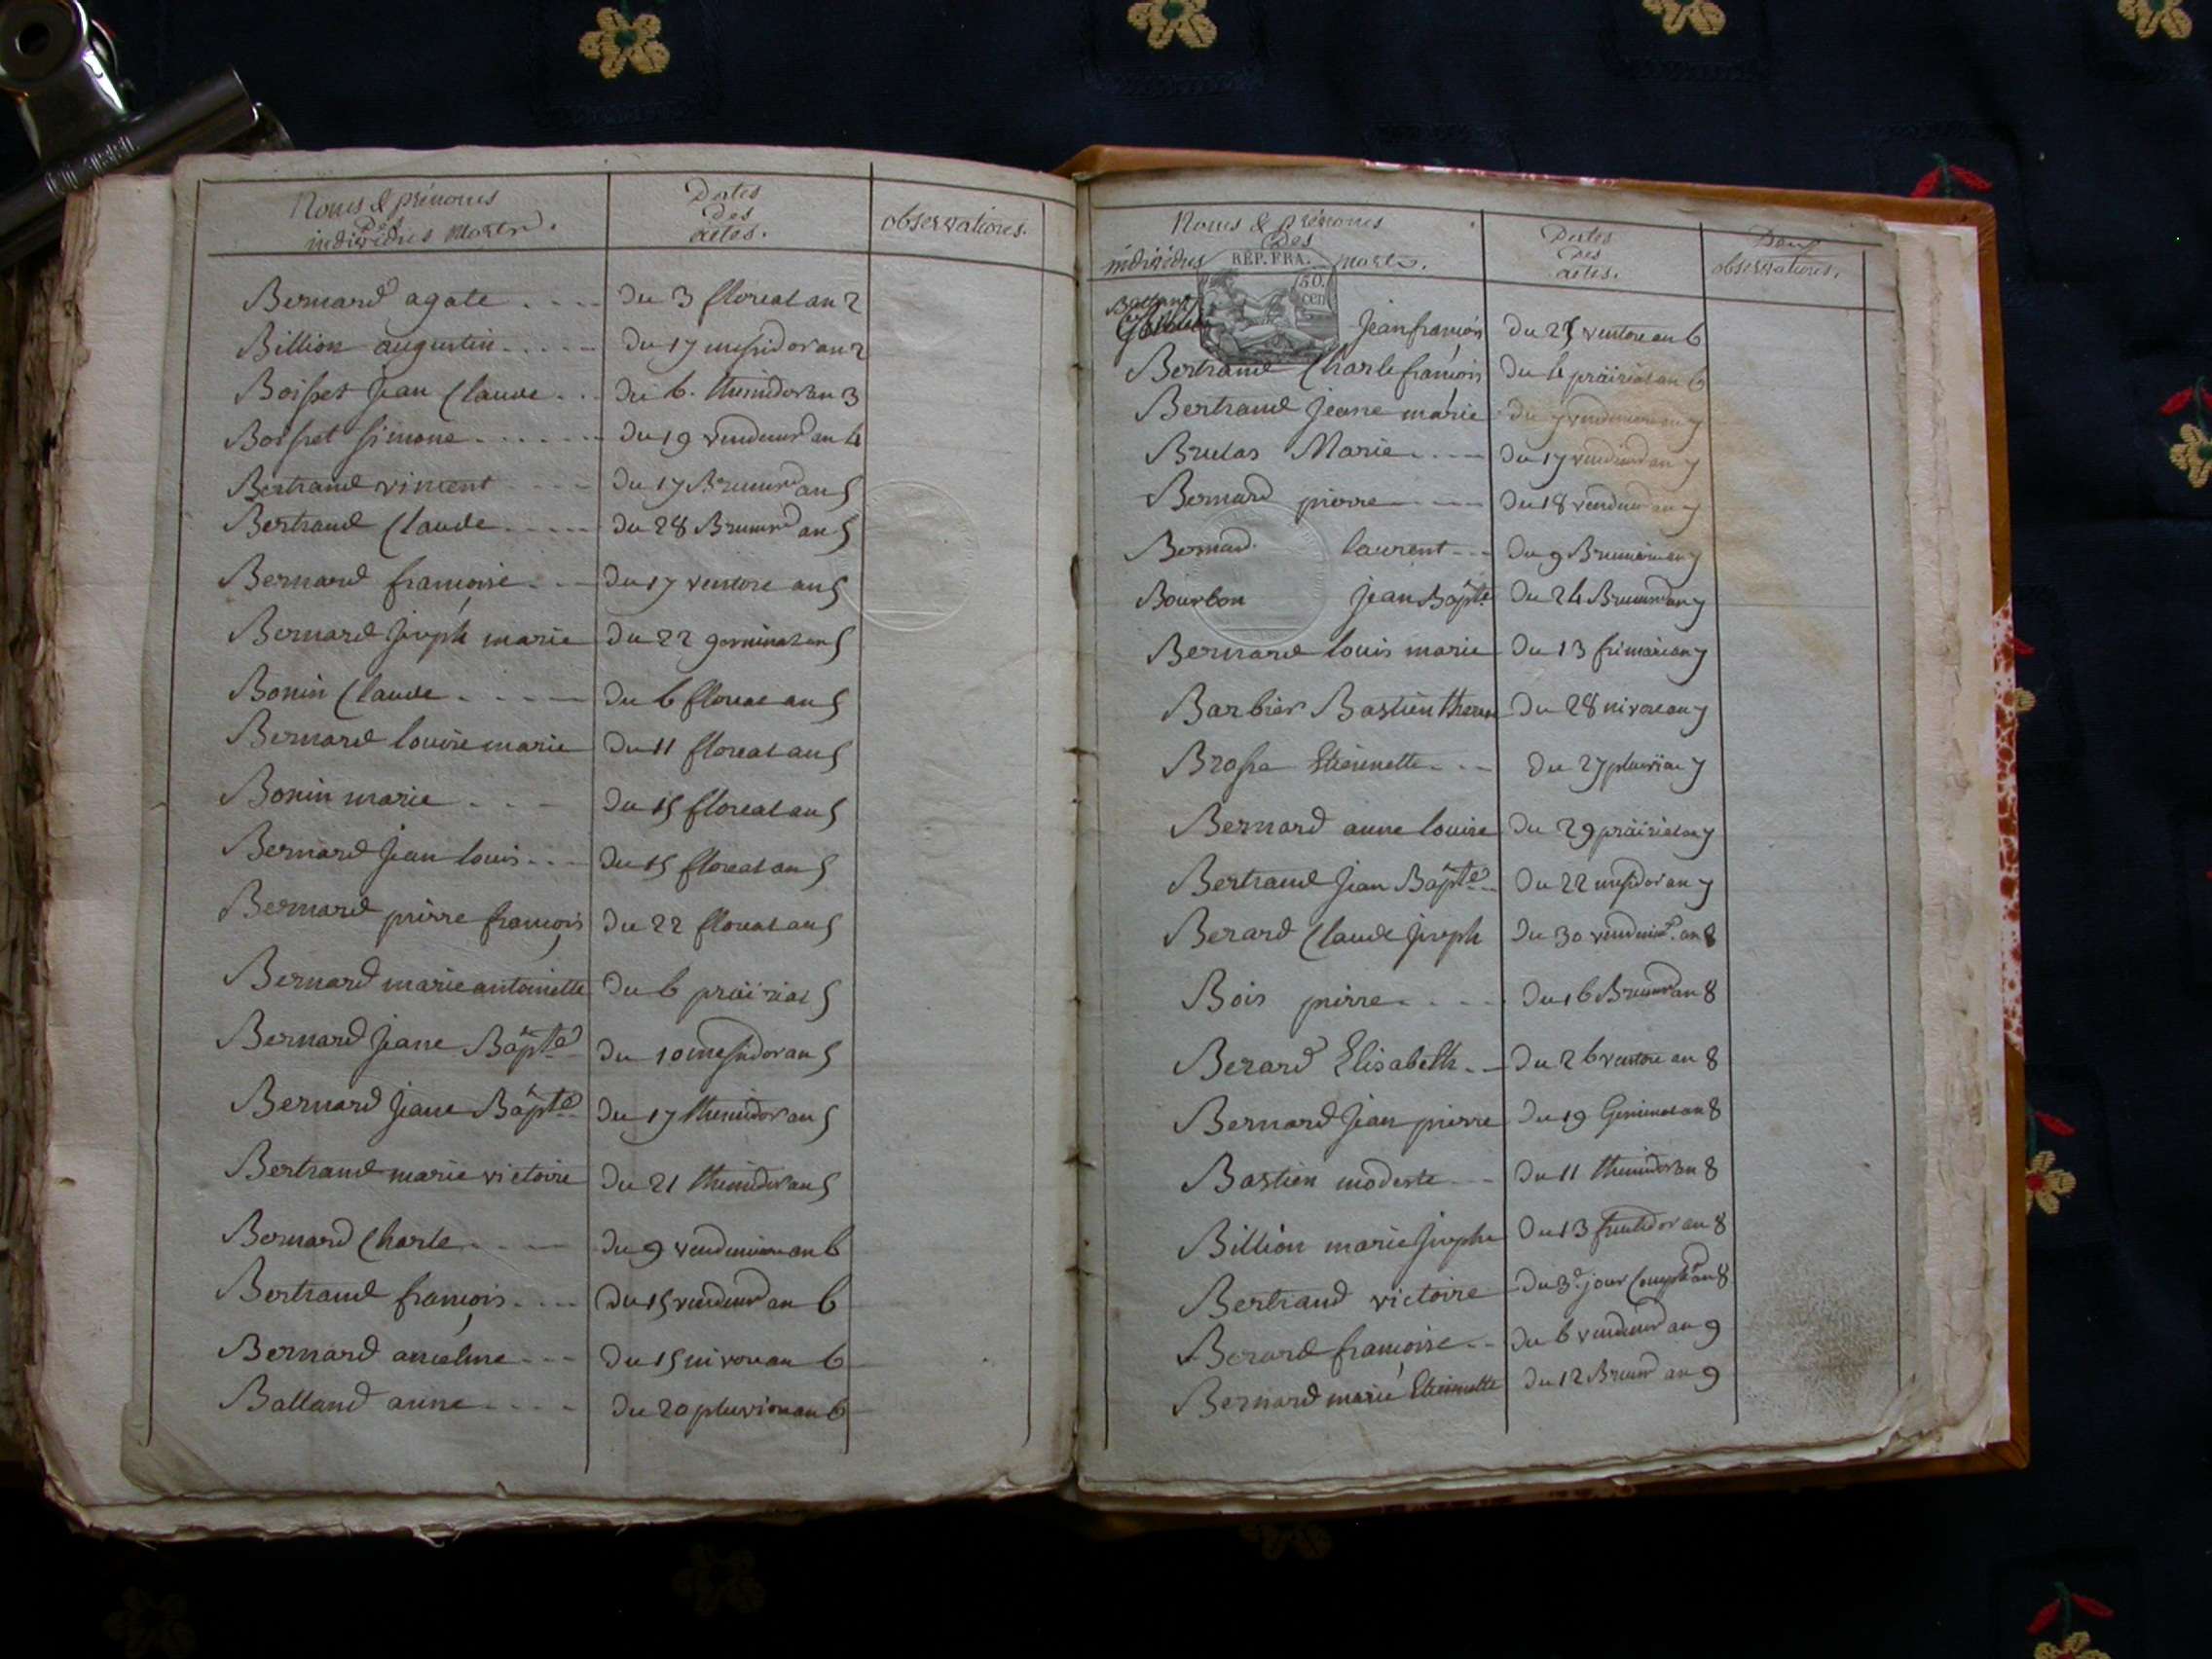 Noms & prénoms
des
individus morts.
Dates
des
actes.
observations.
Bernard agate .... Du 3 floreal an 2
Billion augustin ..... Du 17 messidor an 2
Boisset Jean Claude .. Du 6. thermidor an 3
Boisset simone ...... Du 19 vendemrd an 4
Bertrand vincent .... Du 17 Brumrd an 5
Bertrand Claude ..... Du 28 Brumrd an 5
Bernard françoise ... Du 17 ventose an 5
Bernard Joseph marie Du 22 germinal an 5
Bonin Claude ..... Du 6 floreal an 5
Bernard louise marie Du 11 floreal an 5
Bonin marie .... Du 15 floreal an 5
Bernard Jean louis .... Du 15 floreal an 5
Bernard pierre françois Du 22 floreal an 5
Bernard marie antoinette Du 6 prairial 5
Bernard Jeane Bapte Du 10 messidor an 5
Bernard Jeane Bapte Du 17 thermidor an 5
Bertrand marie victoire Du 21 thermidor an 5
Bernard Charle .... Du 9 vendemiaire an 6
Bertrand françois .... Du 15 vendemrd an 6
Bernard anselme ... Du 15 nivose an 6
Balland anne .... Du 20 pluviose an 6
Noms & prénoms
des
individus morts.
REP. FRA.
50.
cen
Dates
des
actes.
observations.
Jean françois Du 25 ventose an 6
Bertrand Charle françois Du 4 prairial an 6
Bertrand Jeane marie Du 7 vendemiaire an 7
Brulas Marie .... Du 17 vendemrd an 7
Bernard pierre .... Du 18 vendemrd an 7
Bernard laurent ... Du 9 Brumaire an 7
Bourbon Jean Bapte Du 24 Brumrd an 7
Bernard louis marie Du 13 frimaire an 7
Barbier Bastien therese Du 28 nivose an 7
Brosse Etiennette ... Du 27 pluviose 7
Bernard anne louise Du 29 prairial an 7
Bertrand Jean Bapte Du 22 messidor an 7
Berard Claude Joseph Du 30 vendemrd. an 8
Bois pierre .... Du 16 Brumrd an 8
Berard Elisabeth .. Du 26 ventose an 8
Bernard Jean pierre Du 19 Germinal an 8
Bastien modeste ... Du 11 thermidor an 8
Billion marie Josephe Du 13 fructidor an 8
Bertrand victoire Du 3e. jour Complre an 8
Berard françoise .. Du 6 vendemrd an 9
Bernard marie Etiennette Du 12 Brumrd an 9